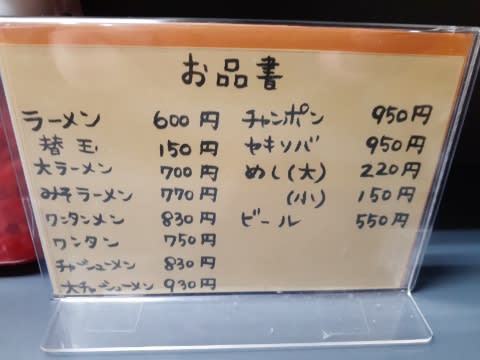 お品書
ラーメン 600円
替玉 150円
大ラーメン 700円
みそラーメン 770円
ワンタンメン 830円
ワンタン 750円
チャシューメン 830円
大チャシューメン 930円
チャンポン 950円
セキソバ 950円
めし(大) 220円
(小) 150円
ビール 550円